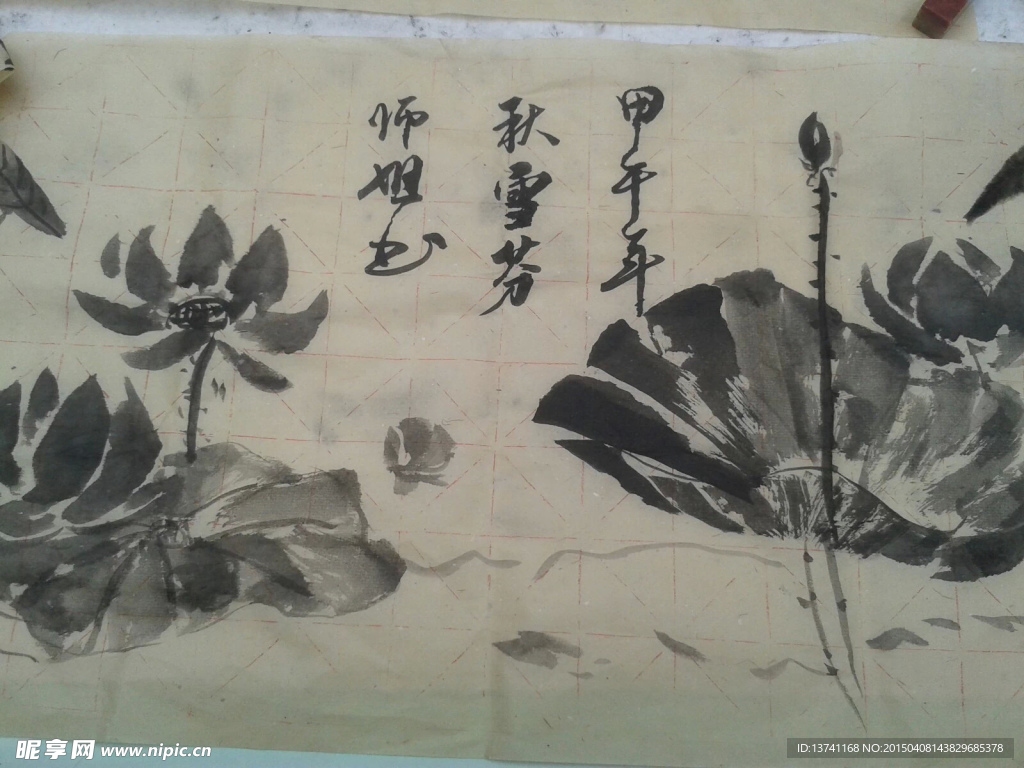 甲午年
秋雪芬
师姐书
昵享网 www.nipic.cn
ID:13741168 NO:20150408143829685378